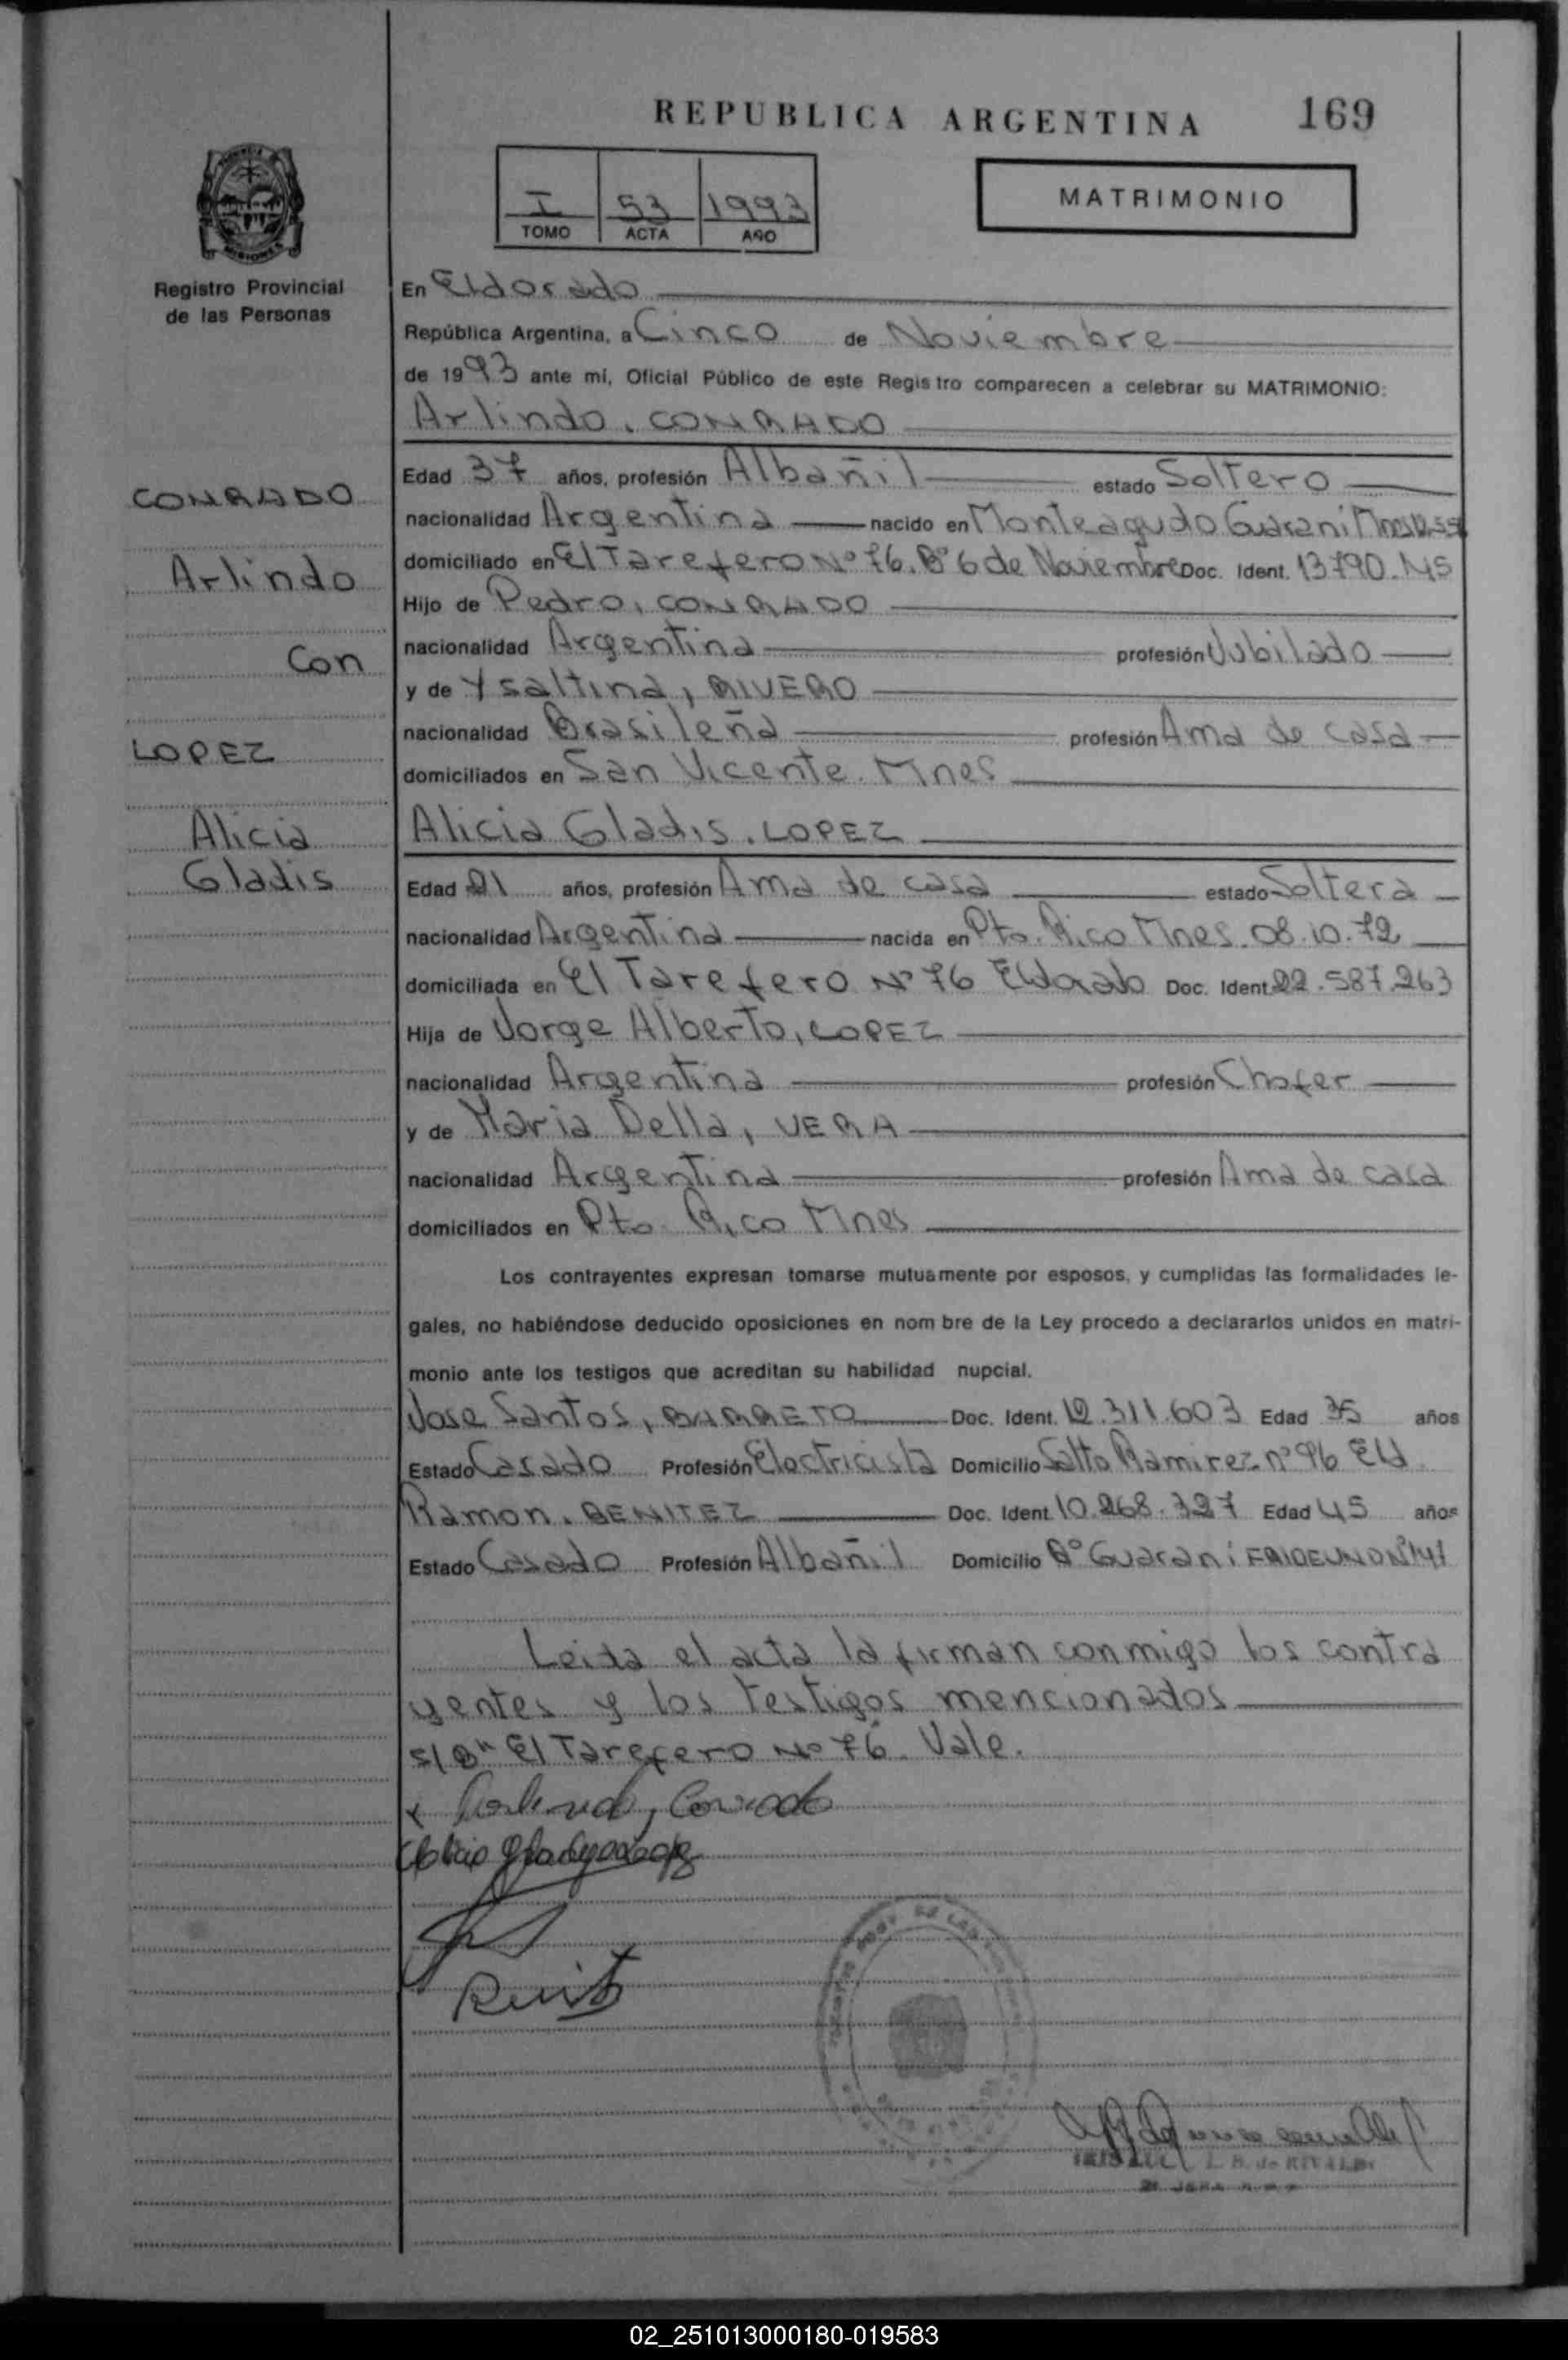 REPUBLICA ARGENTINA 169
I 53 1993
TOMO ACTA AÑO
MATRIMONIO
Registro Provincial
de las Personas
En Eldorado
República Argentina, a Cinco de Noviembre
de 1993 ante mí, Oficial Público de este Registro comparecen a celebrar su MATRIMONIO:
Arlindo, CONRADO
CONRADO
Arlindo
Con
LOPEZ
Alicia
Gladis
Edad 37 años, profesión Albañil estado Soltero
nacionalidad Argentina nacido en Monteagudo Guarani
domiciliado en El Tarefero Nº 76. Bº 6 de Noviembre Doc. Ident. 13.790.145
Hijo de Pedro, CONRADO
nacionalidad Argentina profesión Jubilado
y de Ysaltina, RIVERO
nacionalidad Brasileña profesión Ama de casa
domiciliados en San Vicente. Mnes
Alicia Gladis. LOPEZ
Edad 21 años, profesión Ama de casa estado Soltera
nacionalidad Argentina nacida en Pto. Rico Mnes. 08.10.72
domiciliada en El Tarefero Nº 76 Eldorado Doc. Ident. 22.587.263
Hija de Jorge Alberto, LOPEZ
nacionalidad Argentina profesión Chofer
y de Maria Della, VERA
nacionalidad Argentina profesión Ama de casa
domiciliados en Pto. Rico Mnes
Los contrayentes expresan tomarse mutuamente por esposos, y cumplidas las formalidades le-
gales, no habiéndose deducido oposiciones en nombre de la Ley procedo a declararlos unidos en matri-
monio ante los testigos que acreditan su habilidad nupcial.
Jose Santos, BARRETO Doc. Ident. 12.311.603 Edad 35 años
Estado Casado Profesión Electricista Domicilio Salto Ramirez nº 96 Eld
Ramon. BENITEZ Doc. Ident. 10.268.327 Edad 45 años
Estado Casado Profesión Albañil Domicilio Bº Guarani
Leida el acta la firman conmigo los contra
yentes y los testigos mencionados
s/Bn El Tarefero Nº 76. Vale.
x Arlindo, Conrado
Alicia Gladys Lopez
L. B. de RIVALDI
02_251013000180-019583